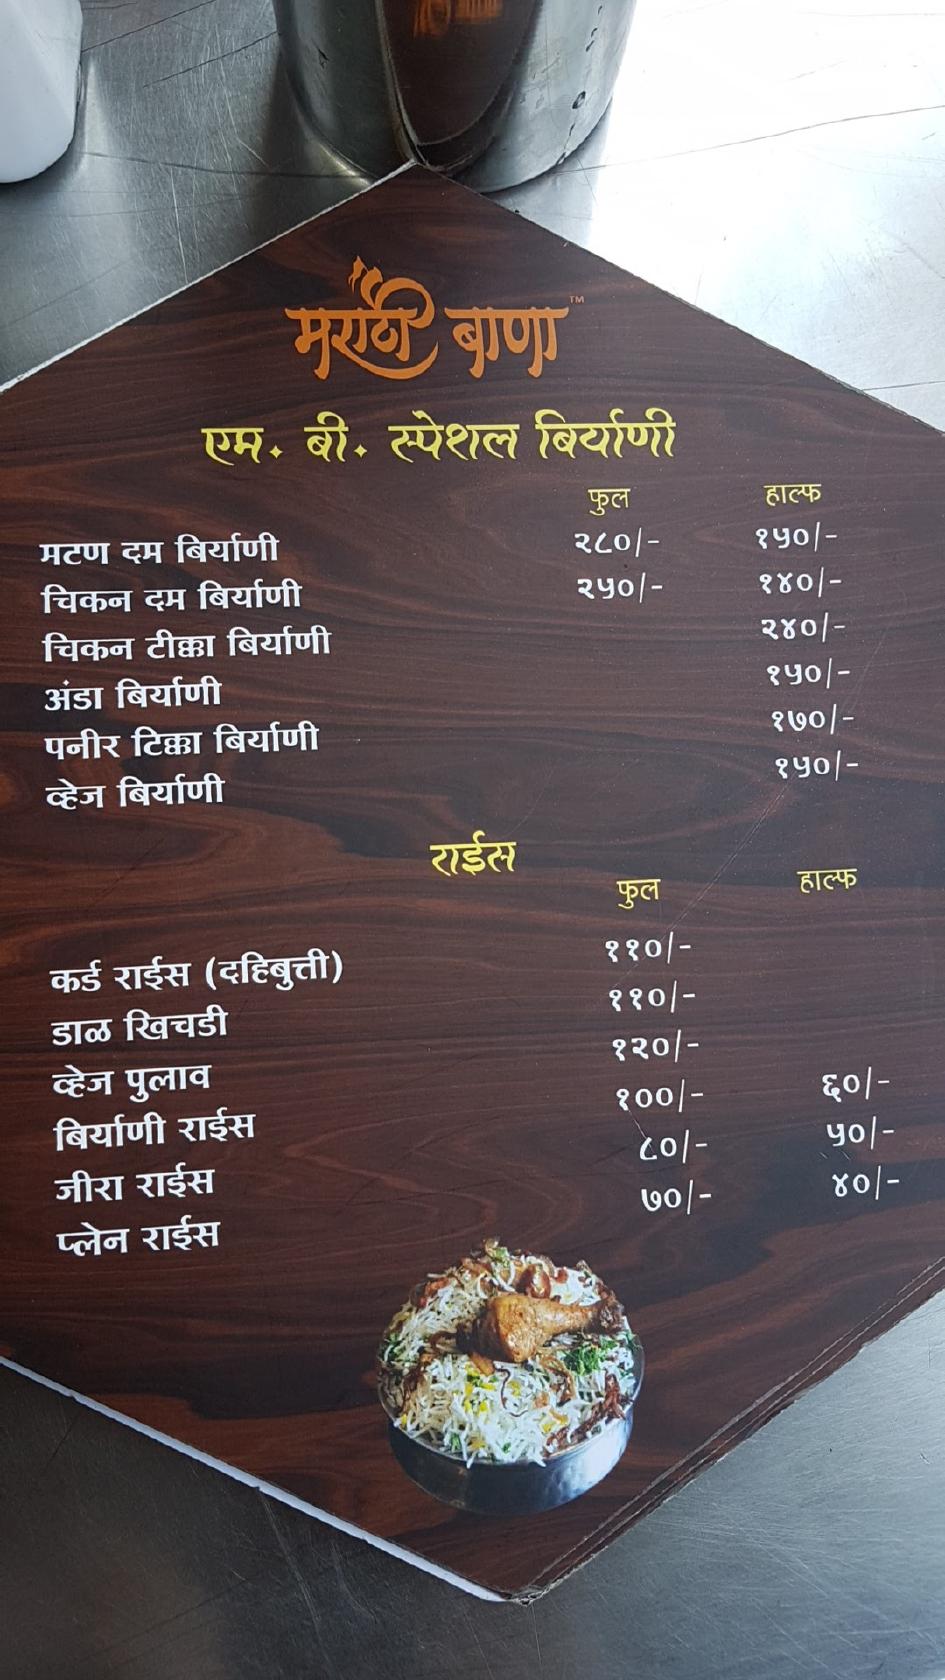 मराठी बाणा™
एम. बी. स्पेशल बिर्याणी
फुल हाल्फ
मटण दम बिर्याणी २८०/- १५०/-
चिकन दम बिर्याणी २५०/- १४०/-
चिकन टीक्का बिर्याणी २४०/-
अंडा बिर्याणी १५०/-
पनीर टिक्का बिर्याणी १७०/-
व्हेज बिर्याणी १५०/-
राईस
फुल हाल्फ
कर्ड राईस (दहिबुत्ती) ११०/-
डाळ खिचडी ११०/-
व्हेज पुलाव १२०/-
बिर्याणी राईस १००/- ६०/-
जीरा राईस ८०/- ५०/-
प्लेन राईस ७०/- ४०/-